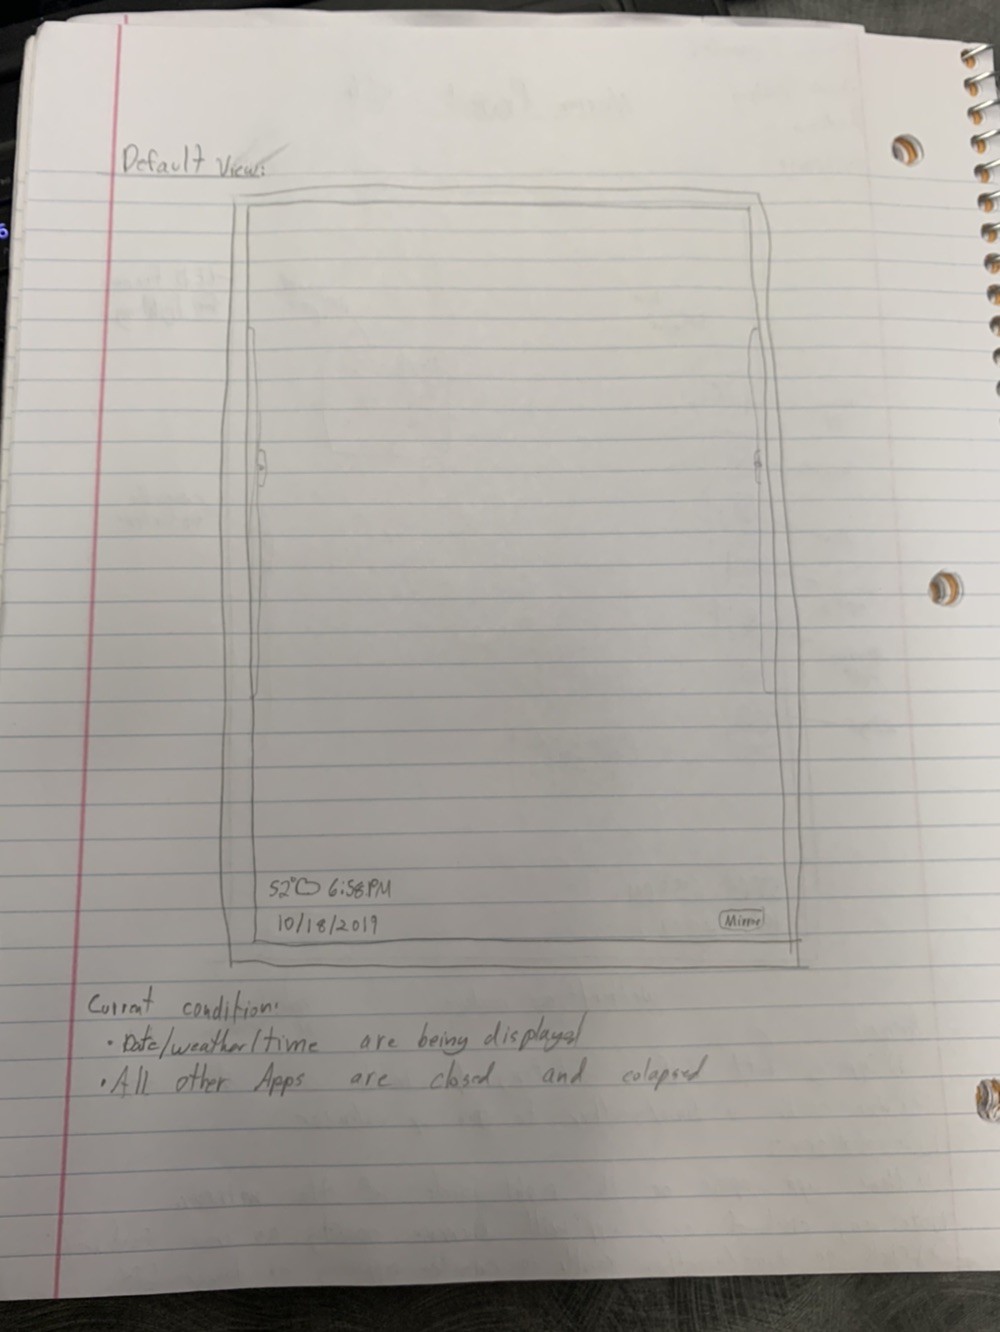 Default View:
52° 6:58PM
10/18/2019
Mirror
Current condition:
• Date/weather/time are being displayed
• All other Apps are closed and colapsed